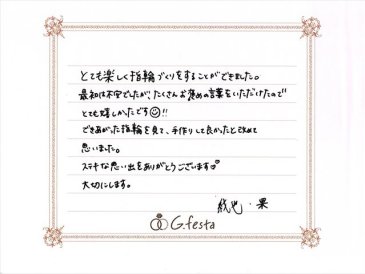 とても楽しく指輪づくりをすることができました。
最初は不安でしたが、たくさんお褒めの言葉をいただけたので
とても嬉しかったです☺!!
できあがった指輪を見て、手作りして良かったと改めて
思いました。
ステキな思い出をありがとうございます♡
大切にします。
・果
G.festa